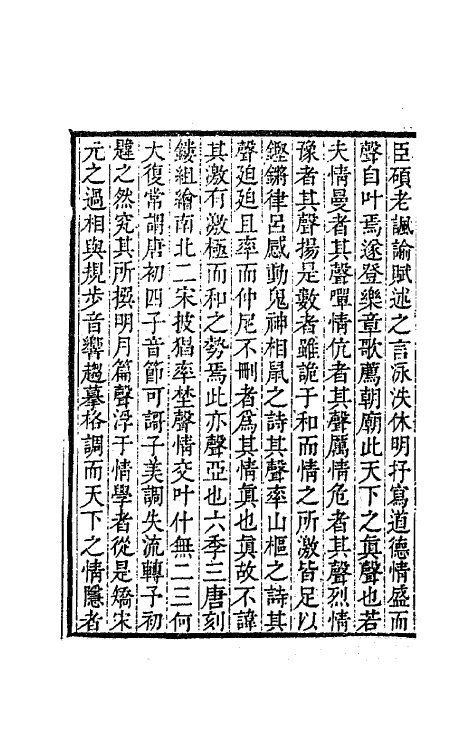 臣碩老諷諭賦述之言泳泆休明抒寫道德情盛而
聲自叶焉遂登樂章歌薦朝廟此天下之眞聲也若
夫情曼者其聲嘽情伉者其聲厲情危者其聲烈情
豫者其聲揚是數者雖詭于和而情之所激皆足以
鏗鏘律呂感動鬼神相鼠之詩其聲率山樞之詩其
聲迫迫且率而仲尼不刪者爲其情眞也眞故不諱
其激有激極而和之勢焉此亦聲亞也六季三唐刻
鏤組繪南北二宋披猖率埜聲情交叶什無二三何
大復常謂唐初四子音節可謌子美調失流轉予初
韙之然究其所撰明月篇聲浮于情學者從是矯宋
元之過相與規步音響趨摹格調而天下之情隱者